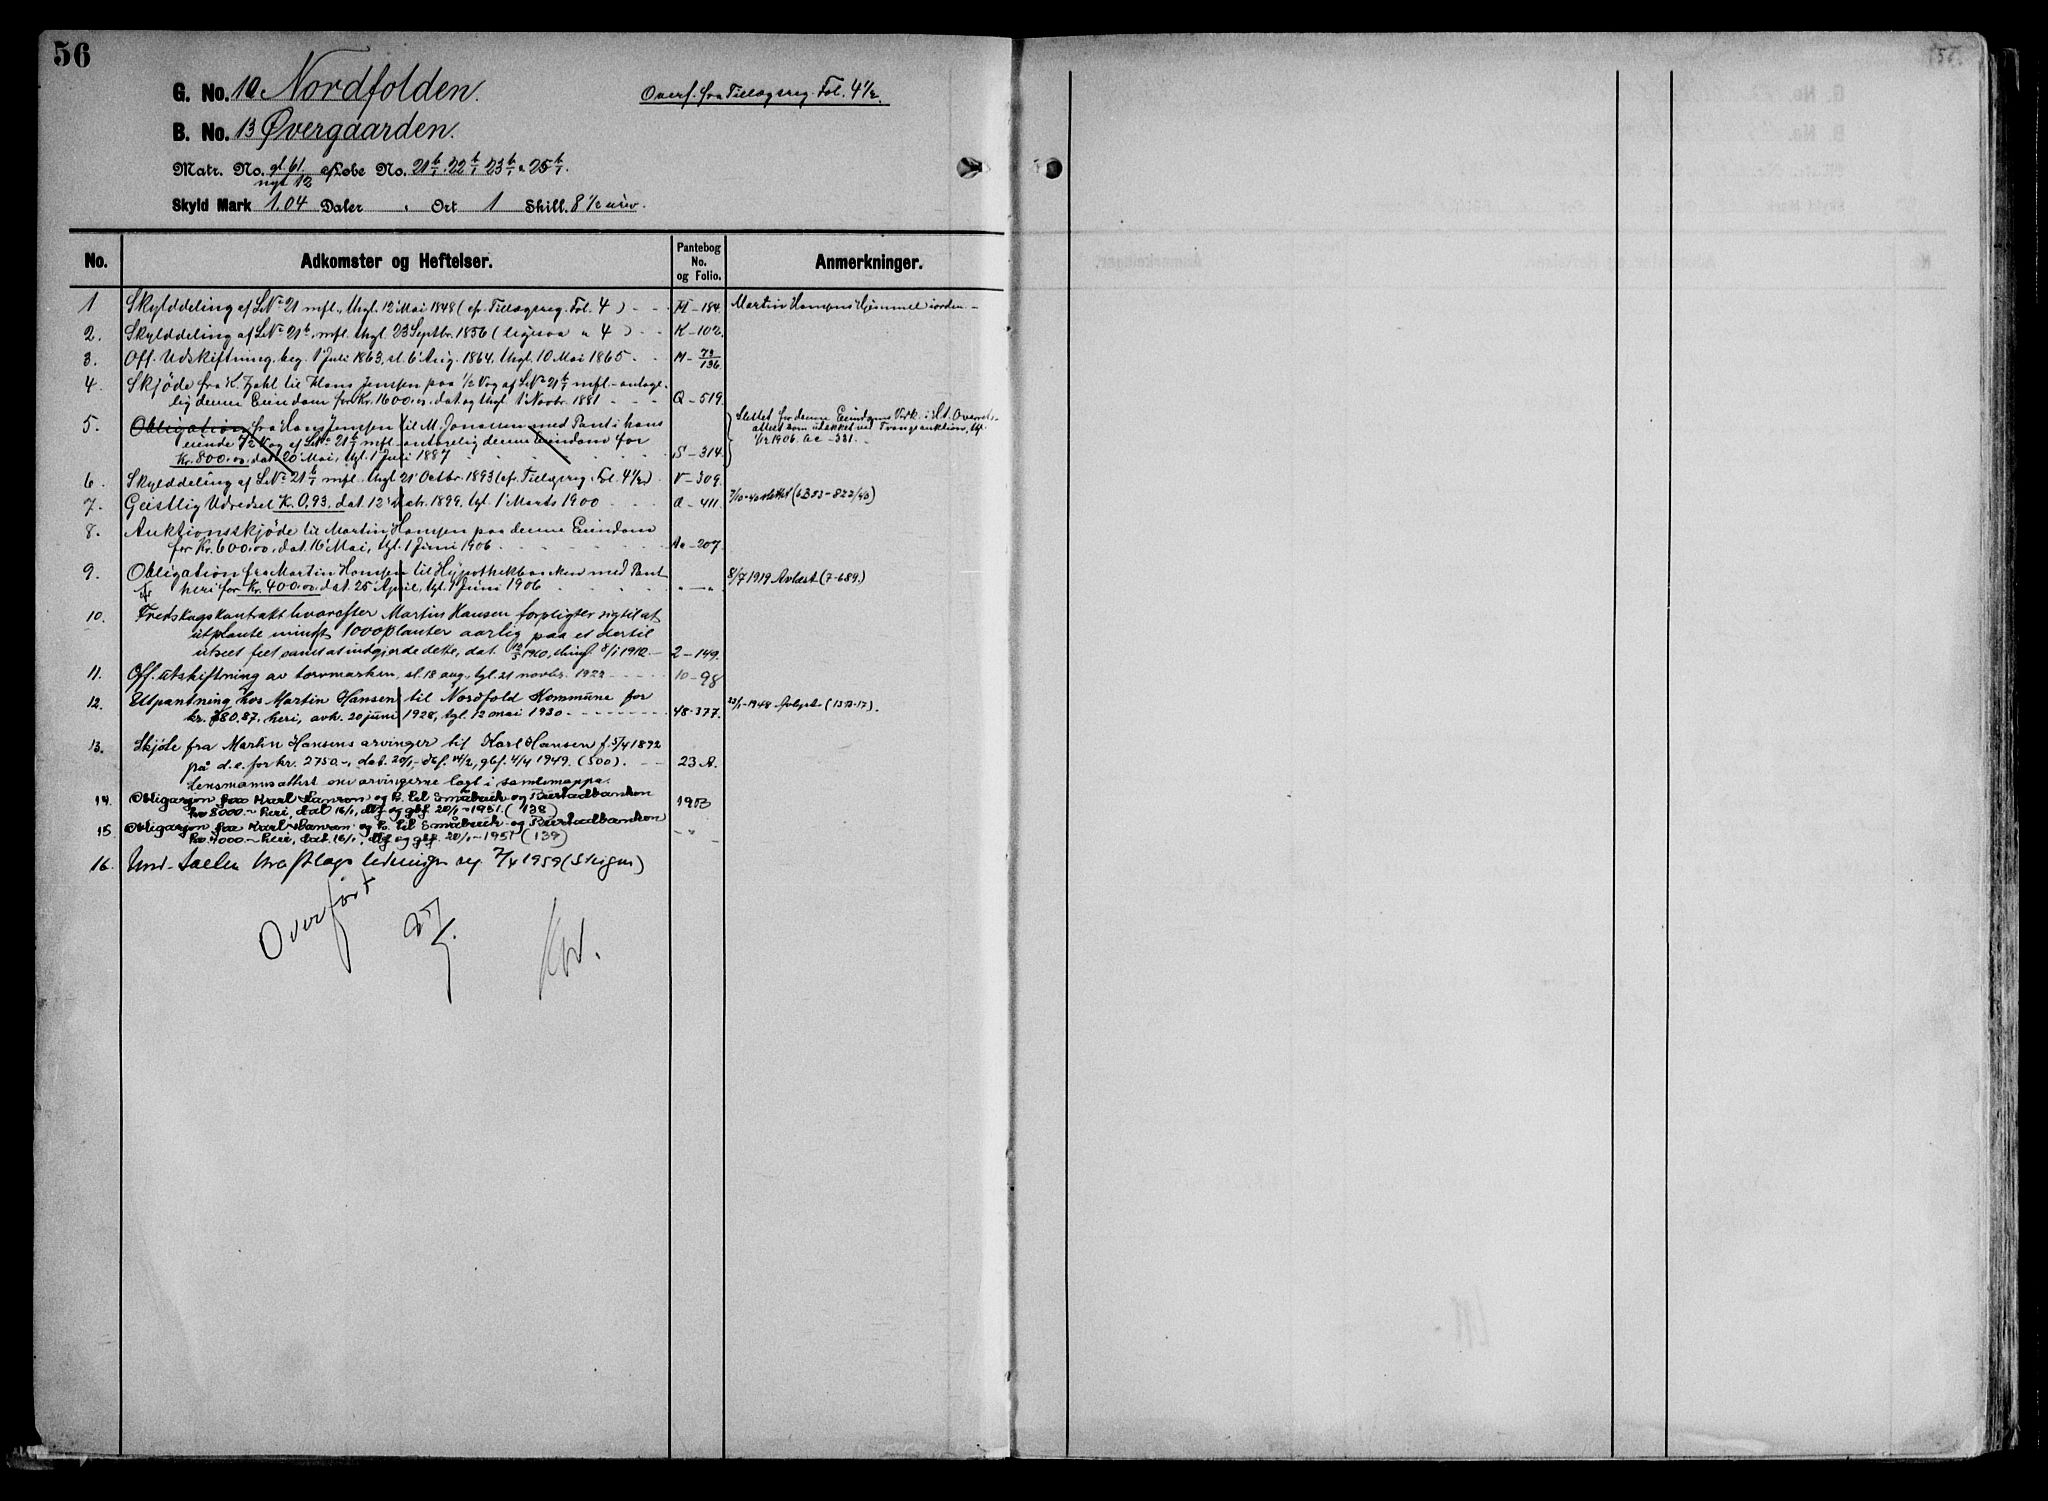 56
G. No. 10 Nordfolden.
Overf. fra Tillægsreg. Fol. 4 1/2.
B. No. 13 Øvergaarden.
Matr. No. gl. 61. Løbe No. 21 b/1. 22 b/1 23 b/1 25 b/1.
nyt 12
Skyld Mark 1.04 Daler " Ort 1 Skill. 8 1/2
No. Adkomster og Heftelser. Pantebog No. og Folio. Anmerkninger.
1 Skylddeling af LNr 21 mfl., thgl. 12 Mai 1848 (cfr. Tillægsreg. Fol. 4) - 184. Martin Hansens Hjemmel i orden -
2. Skylddeling af LNr 21 b, mfl. thgl. 23 Septbr. 1856 (ligesaa " 4) K - 102.
3. Off. Udskiftning, beg. 1 Juli 1863, sl. 6 Aug. 1864, thgl. 10 Mai 1865 M - 73/136
4. Skjøde fra H. Zahl til Hans Jensen paa 1/2 Vog af LNr 21 b/1 mfl. - antage-
lig denne Eiendom for Kr. 1600.00, dat. og thgl. 1 Novbr. 1881 Q - 519
5. Obligation fra Hans Jensen til M. Jonassen med Pant i hans
eiende 1/2 Vog af LNr 21 b/1 mfl. antagelig denne Eiendom for
Kr. 800.00, dat. 20 Mai, thgl. 1 Juli 1887 S - 314
Slettet for denne Eiendoms Vedk. i H. t. Overrets-
attest som udækket ved Tvangsauktion, thgl.
1/12 1906. Aa - 381.
6. Skylddeling af LNr 21 b/1 mfl. thgl. 21 Octbr. 1893 (cfr. Tillægsreg. Fol. 4 1/2) V - 309.
7. Geistlig Udredsel Kr. 0,93, dat. 12 1899, tgl. 1 Marts 1900 a - 411. 7/10-40 slettet (BB53-822/40)
8. Auktionsskjøde til Martin Hansen paa denne Eiendom
for Kr. 600.00, dat. 16 Mai, tgl. 1 Juni 1906 Aa - 207
9. Obligation fra Martin Hansen til Hypothekbanken med Pant
heri for Kr. 400.00, dat. 25 April, tgl. 1 Juni 1906 " - " 8/7 1919 Avlæst (7-689.)
10. Fredskogskontrakt hvorefter Martin Hansen forpligter sig til at
utplante mindst 1000 planter aarlig paa et dertil
utseet felt samt at indgjerde dette, dat. 12/3 1910, thingl. 8/1 1912 2 - 149.
11. Off. utskiftning av torvmarken, sl. 18 aug., tgl. 21 novbr. 1922 10 - 98
12. Utpantning hos Martin Hansen til Nordfold Kommune for
kr. 80,87, heri, avh. 20 juni 1928, tgl. 12 mai 1930 48-377. 23/1-1948 Avlyst (1373-17).
13. Skjøte fra Martin Hansens arvinger til Karl Hansen f. 5/4 1892
på d.e. for kr. 2750.-, dat. 20/1, dbf. 14/2, gbf. 4/4 1949. (500). 23 A.
Lensmannsattest om arvingerne lagt i samlemappa.
14. Obligasjon fra Karl Hansen og h. til Småbruk og Bustadbanken
kr 8000.- heri, dat. 16/1, dbf og gbf. 20/1-1951. (138) 1903
15. Obligasjon fra Karl Hansen og h. til Småbruk og Bustadbanken
kr. 4000.- heri, dat. 16/1, dbf og gbf. 20/1-1951 (139) - " -
16. Kraftlags ledninger reg. 7/4 1959 (Steigen)
Overført